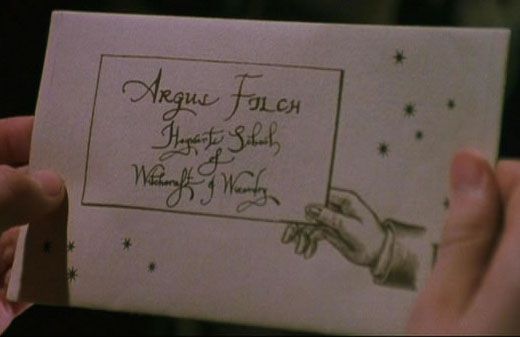 Argus Filch
Hogwarts School
of
Witchcraft & Wizardry